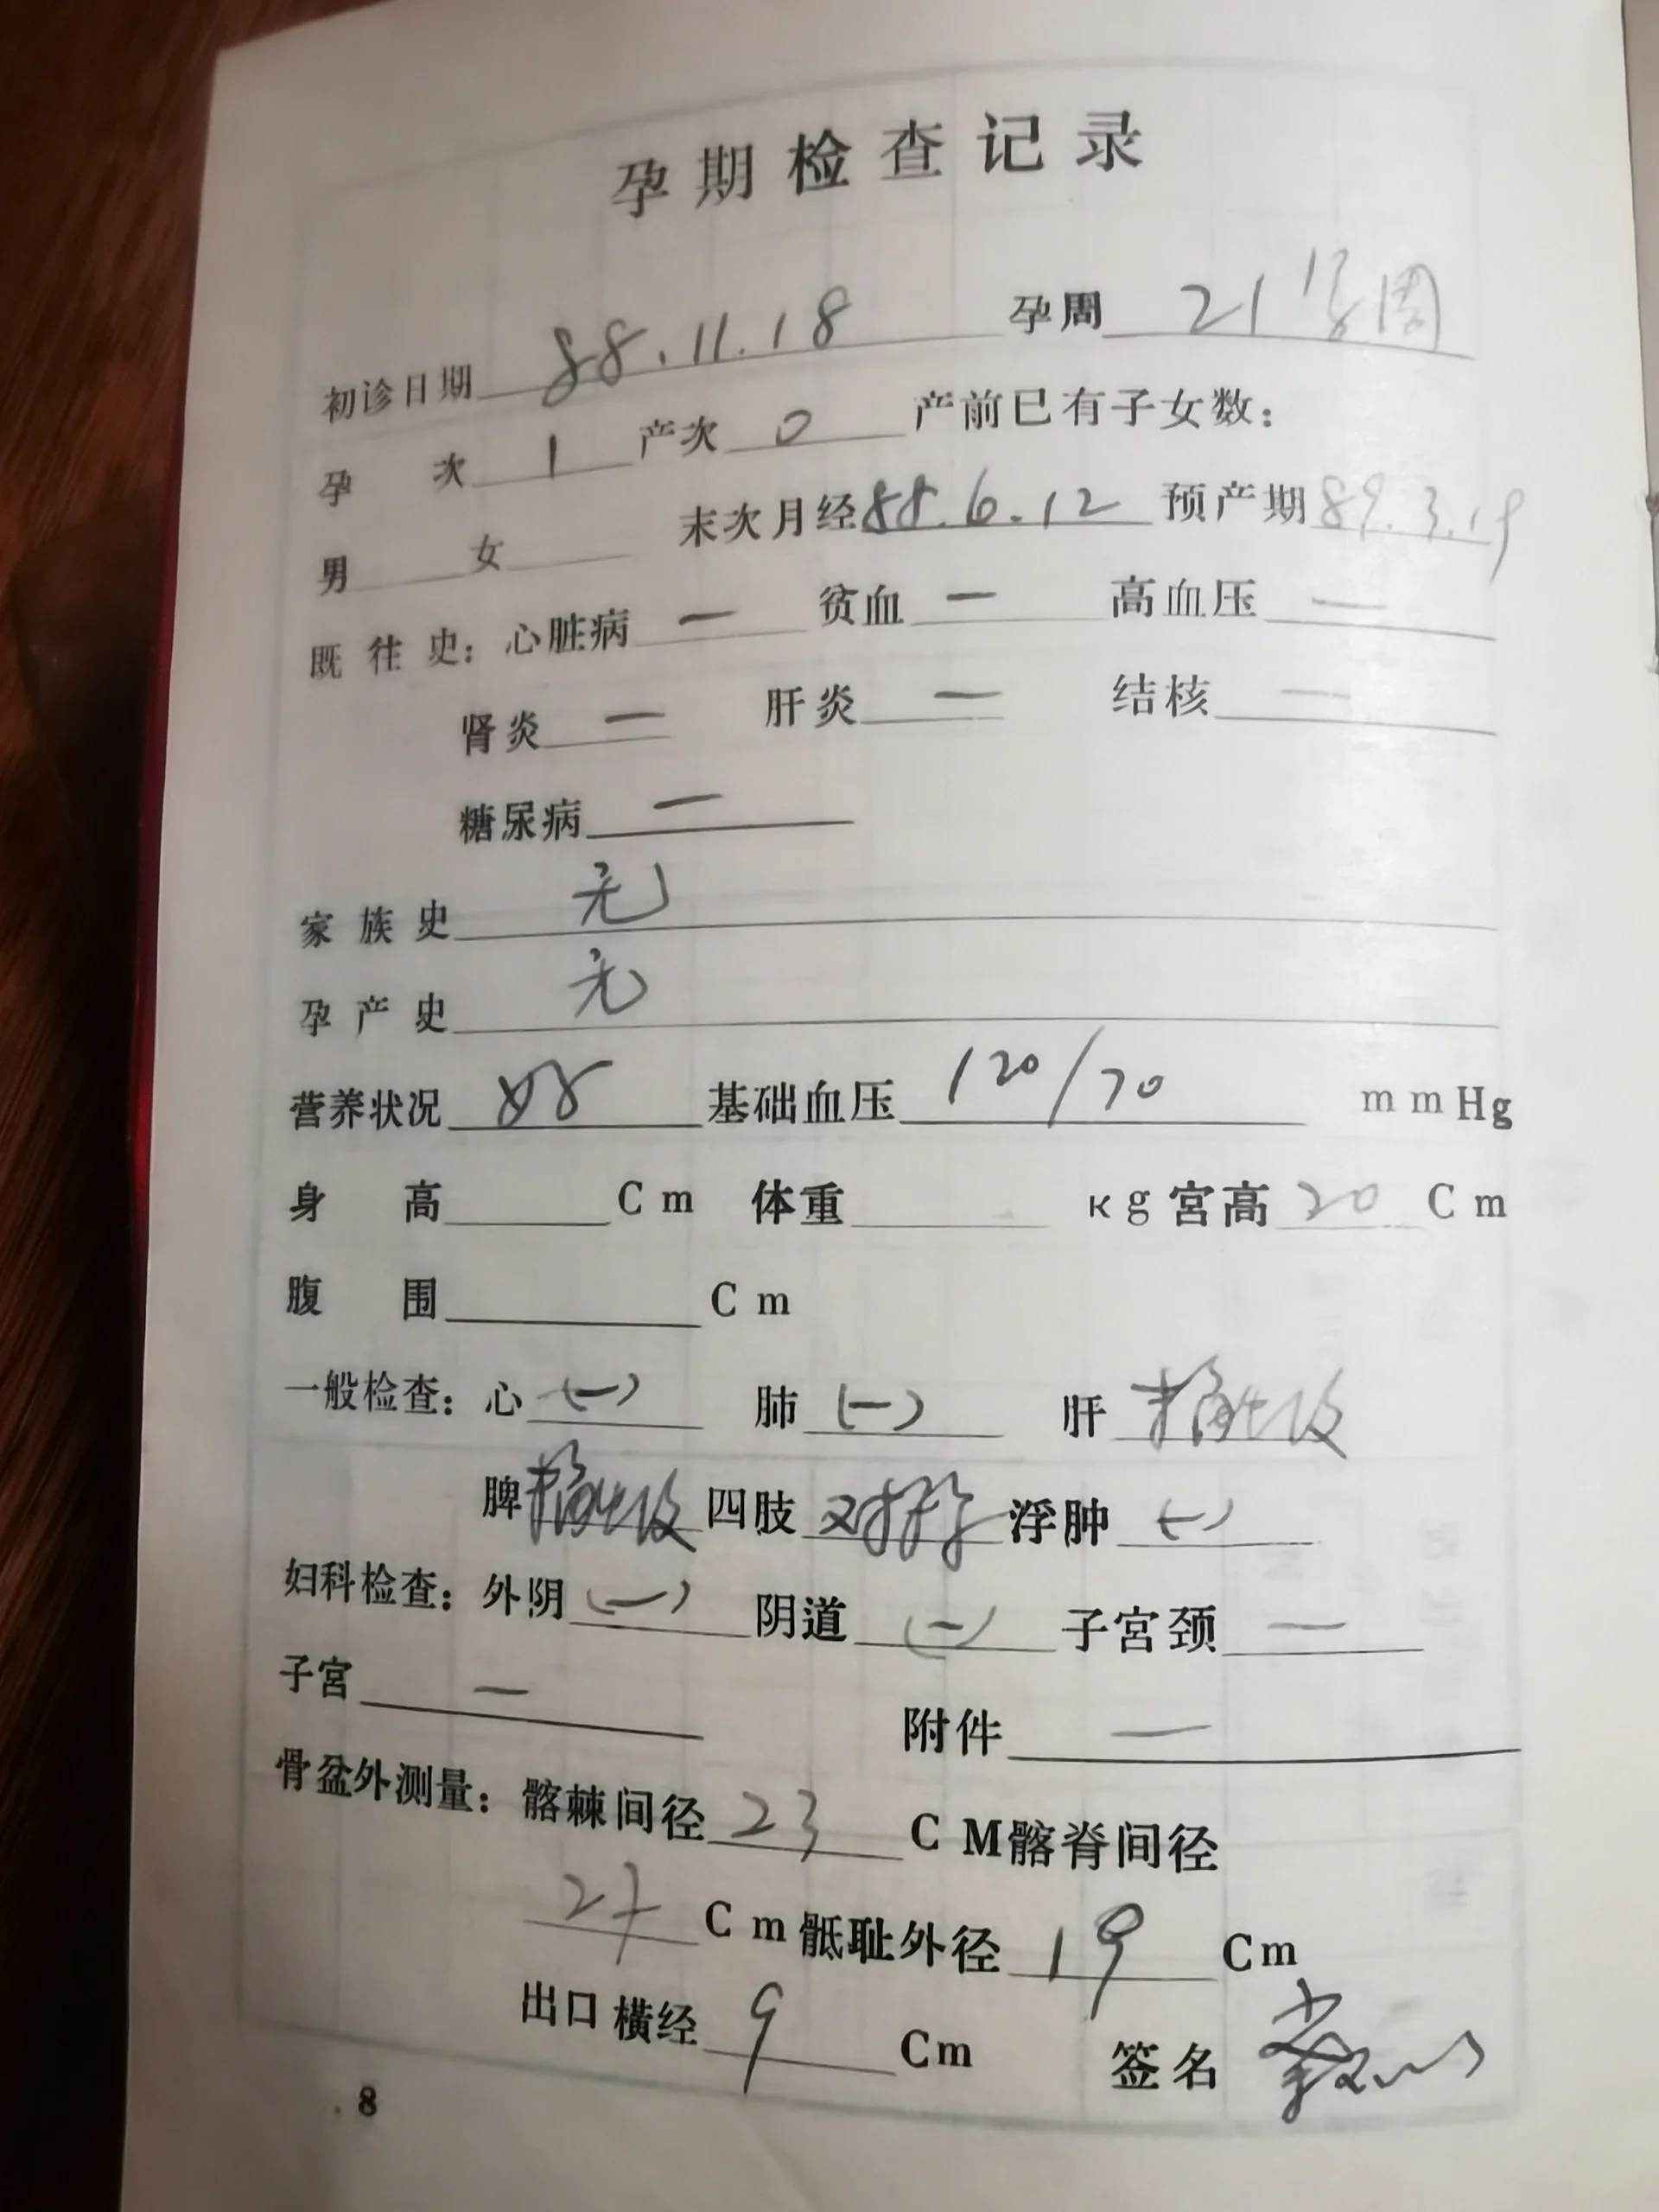 孕期检查记录
初诊日期 88.11.18 孕周 21 周
孕次 1 产次 0 产前已有子女数:
男 女 末次月经 88.6.12 预产期 89.3.19
既往史: 心脏病 一 贫血 一 高血压 一
肾炎 一 肝炎 一 结核 一
糖尿病 一
家族史 无
孕产史 无
营养状况 好 基础血压 120/70 mmHg
身高 Cm 体重 Kg 宫高 20 Cm
腹围 Cm
一般检查: 心 (一) 肺 (一) 肝
脾 四肢 对称 浮肿 (一)
妇科检查: 外阴 (一) 阴道 (一) 子宫颈 一
子宫 一 附件 一
骨盆外测量: 髂棘间径 23 CM 髂脊间径
27 Cm 骶耻外径 19 Cm
出口横经 9 Cm 签名
8